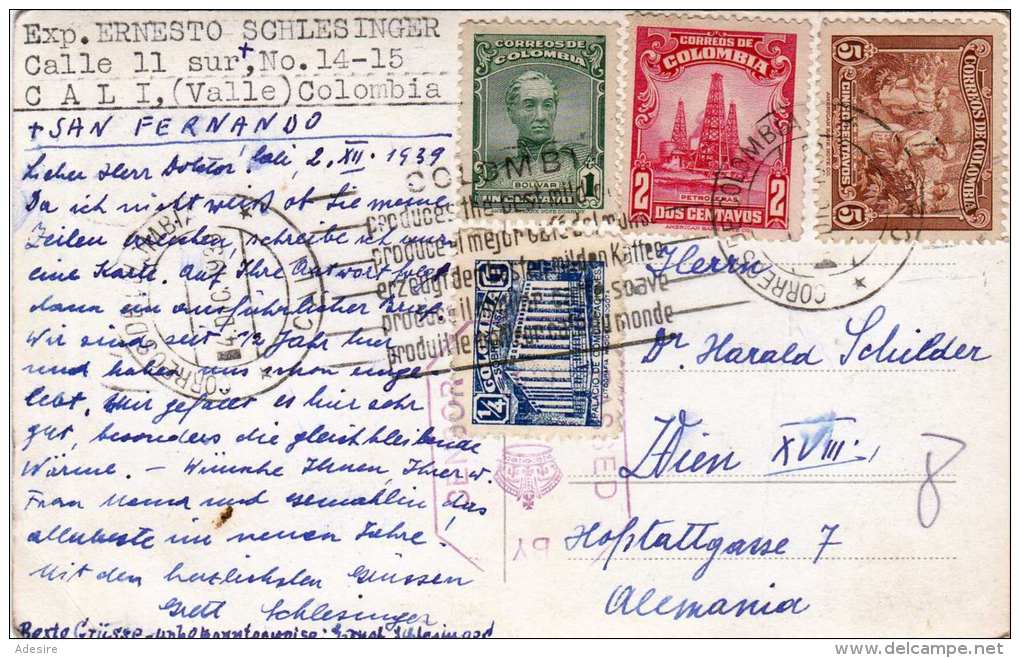 Exp. ERNESTO SCHLESINGER
Calle 11 sur,+ No. 14-15
C A L I,(Valle)Colombia
+ SAN FERNANDO
Lieber Herr Doktor! Cali, 2. XII. 1939
Da ich nicht weiß ob Sie meine
Zeilen erreichen, schreibe ich nur
eine Karte. Auf Ihre Antwort folgt
dann ein ausführlicher Brief.
Wir sind seit 1/2 Jahr hier
und haben uns schon einge-
lebt. Mir gefällt es hier sehr
gut, besonders die gleichbleibende
Wärme. – Wünsche Ihnen, Ihrer w.
Frau Mama und Gemahlin das
allerbeste im neuen Jahre!
Mit den herzlichsten Grüssen
Grett Schlesinger
Beste Grüsse unbekannterweise: Schlesinger
CORREOS DE COLOMBIA
BOLIVAR
1
UN CENTAVO
CORREOS DE COLOMBIA
PETROLERAS
2 2
DOS CENTAVOS
5 5
CORREOS DE COLOMBIA
CINCO CENTAVOS
1/4
COLOMBIA
PALACIO DE COMUNICACIONES
COLOMBIA
produces the best mild
produce el mejor café del mundo
erzeugt den besten milden Kaffee
produce il soave
produit le monde
CORREOS
COLOMBIA
CALI
CORREOS
COLOMBIA
CENSOR
PASSED
BY
Herrn
Dr. Harald Schilder
Wien XVIII.,
Hofstattgasse 7
Alemania
8
© delcampe.net